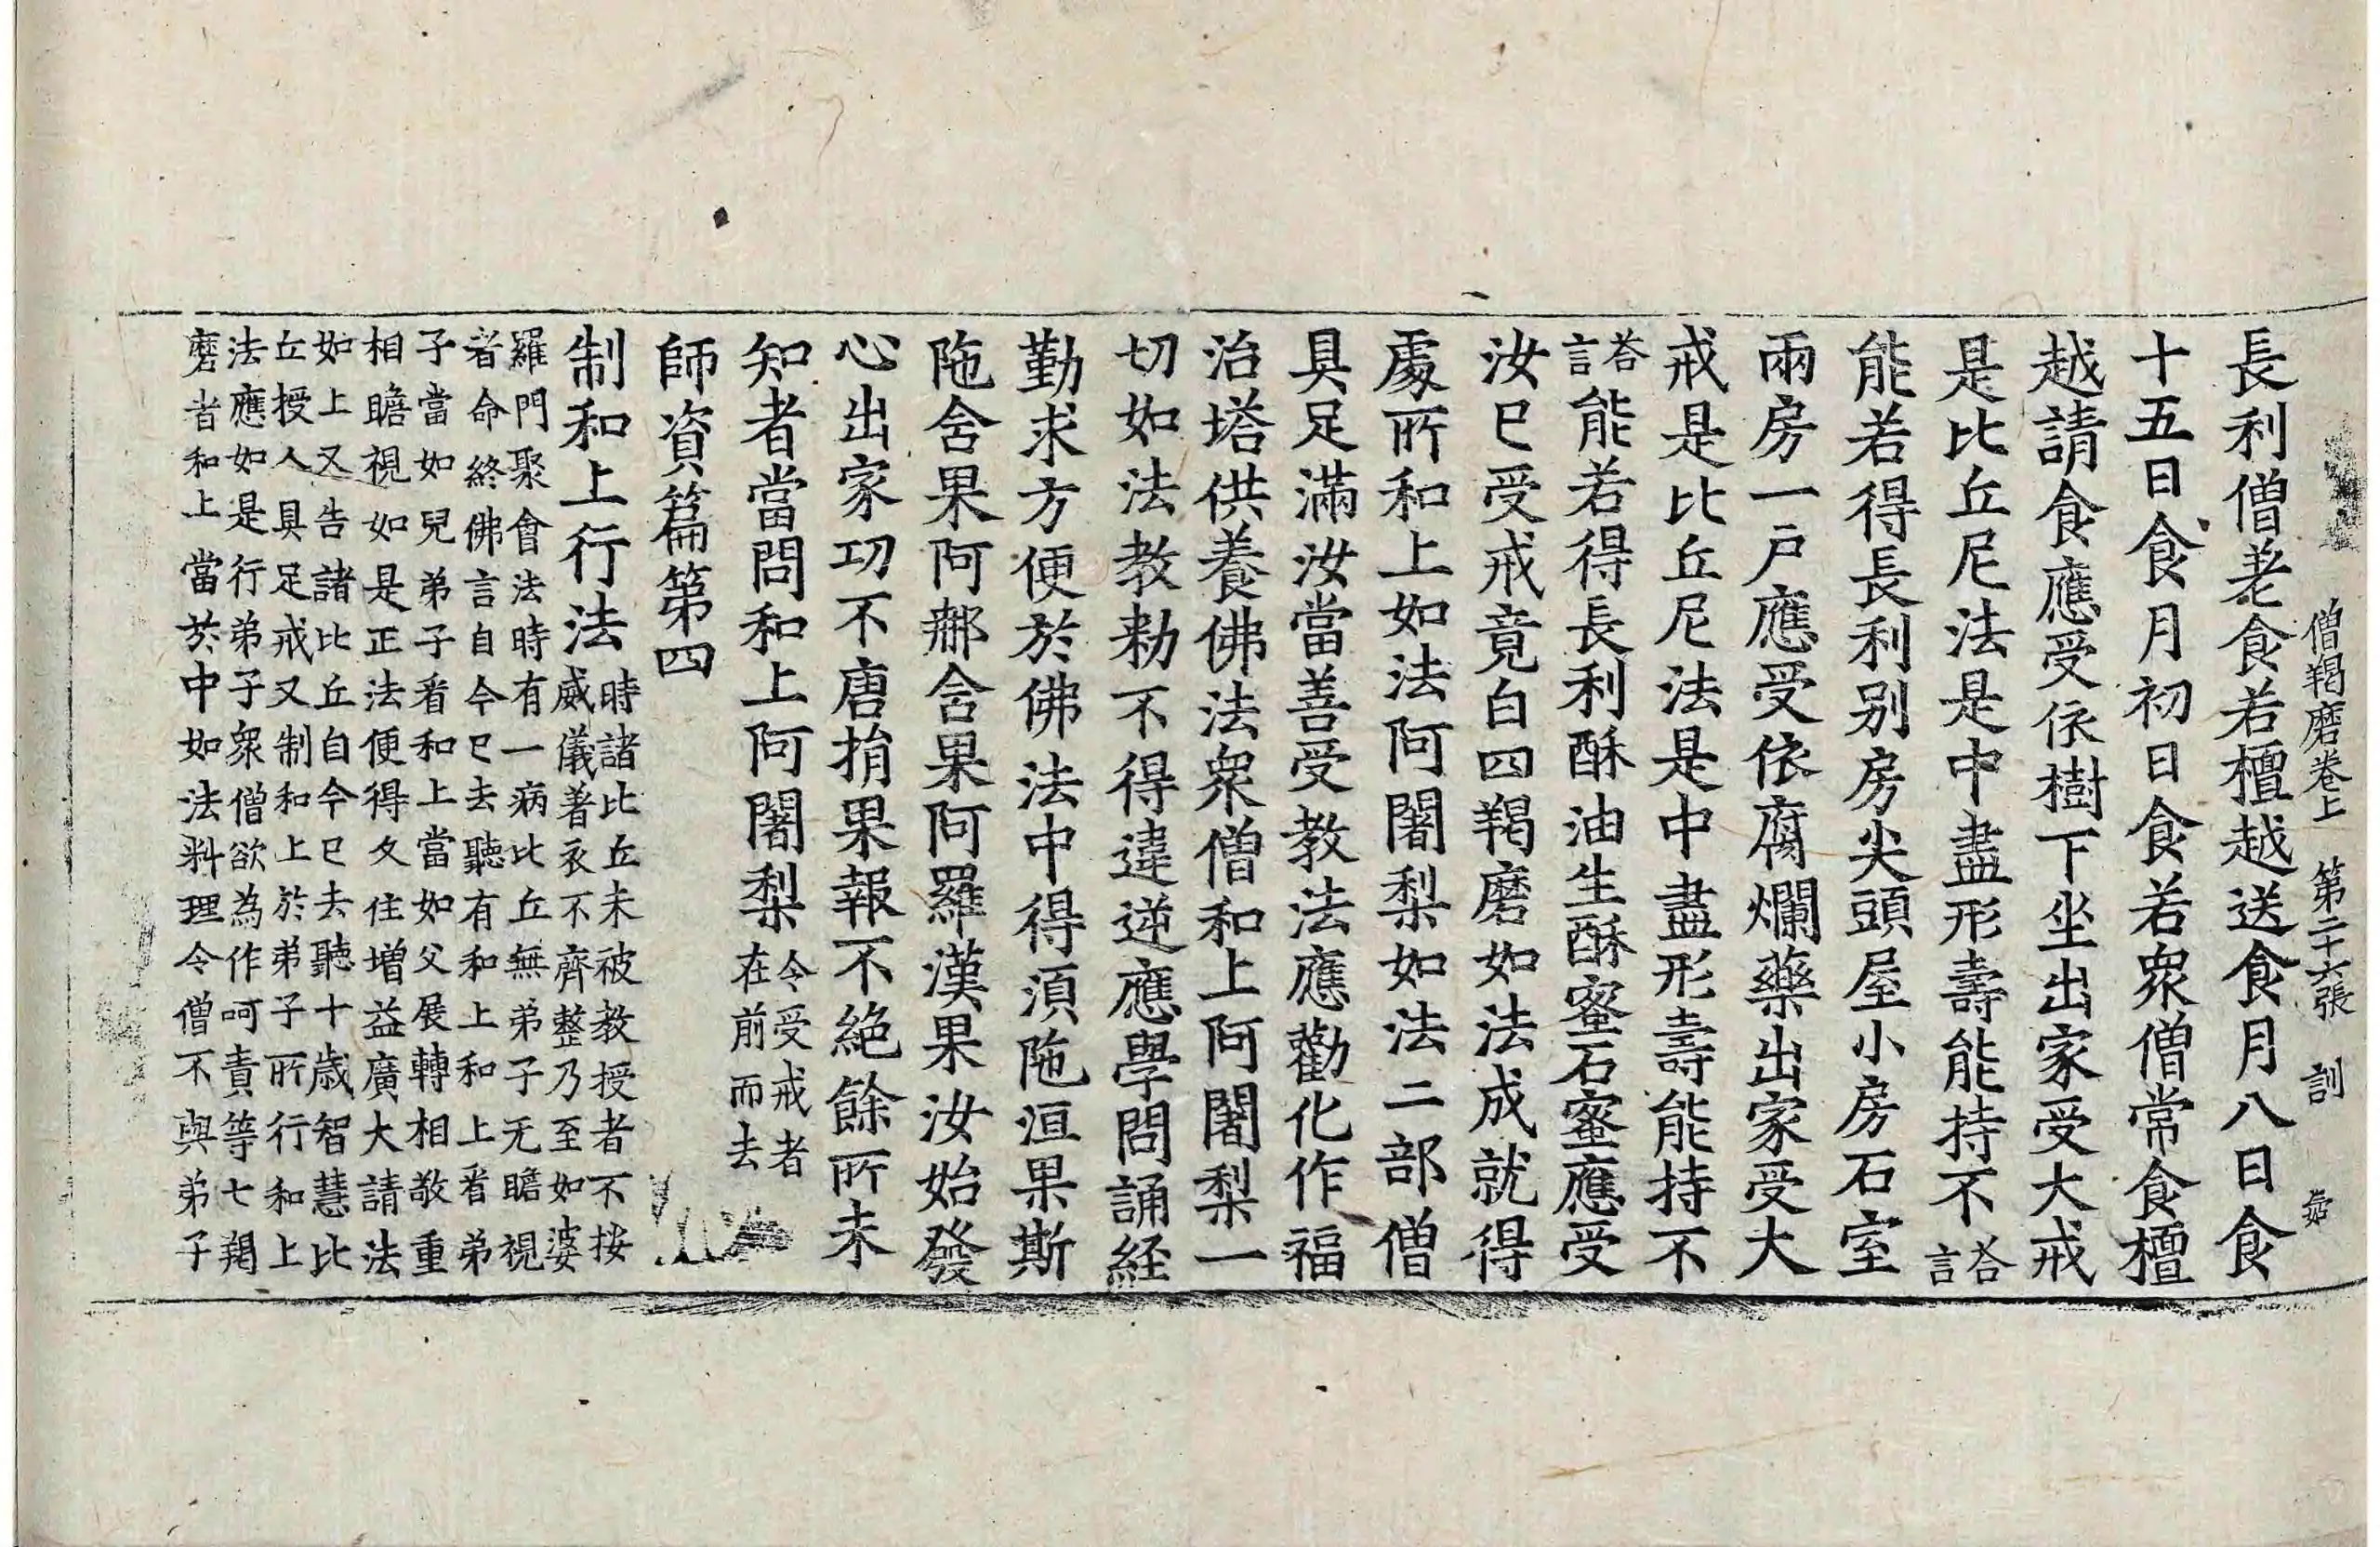 僧羯磨卷上　第二十六張　訓
長利僧老食若檀越送食月八日食
十五日食月初日食若衆僧常食檀
越請食應受依樹下坐出家受大戒
是比丘尼法是中盡形壽能持不荅言
能若得長利別房尖頭屋小房石室
兩房一戶應受依腐爛藥出家受大
戒是比丘尼法是中盡形壽能持不
荅言能若得長利酥油生酥蜜石蜜應受
汝已受戒竟白四羯磨如法成就得
處所和上如法阿闍梨如法二部僧
具足滿汝當善受教法應勸化作福
治塔供養佛法衆僧和上阿闍梨一
切如法教勑不得違逆應學問誦経
勤求方便於佛法中得湏陁洹果斯
陁舍果阿那舍果阿羅漢果汝始發
心出家功不唐捐果報不絕餘所未
知者當問和上阿闍梨令受戒者在前而去
師資篇第四
制和上行法時諸比丘未被教授者不按
威儀著衣不齊整乃至如婆
羅門聚會法時有一病比丘無弟子无瞻視
者命終佛言自今已去聽有和上和上看弟
子當如兒弟子看和上當如父展轉相敬重
相瞻視如是正法便得久住增益廣大請法
如上又告諸比丘自今已去聽十歲智慧比
丘授人具足戒又制和上於弟子所行和上
法應如是行弟子衆僧欲為作呵責等七羯
磨者和上當於中如法料理令僧不與弟子